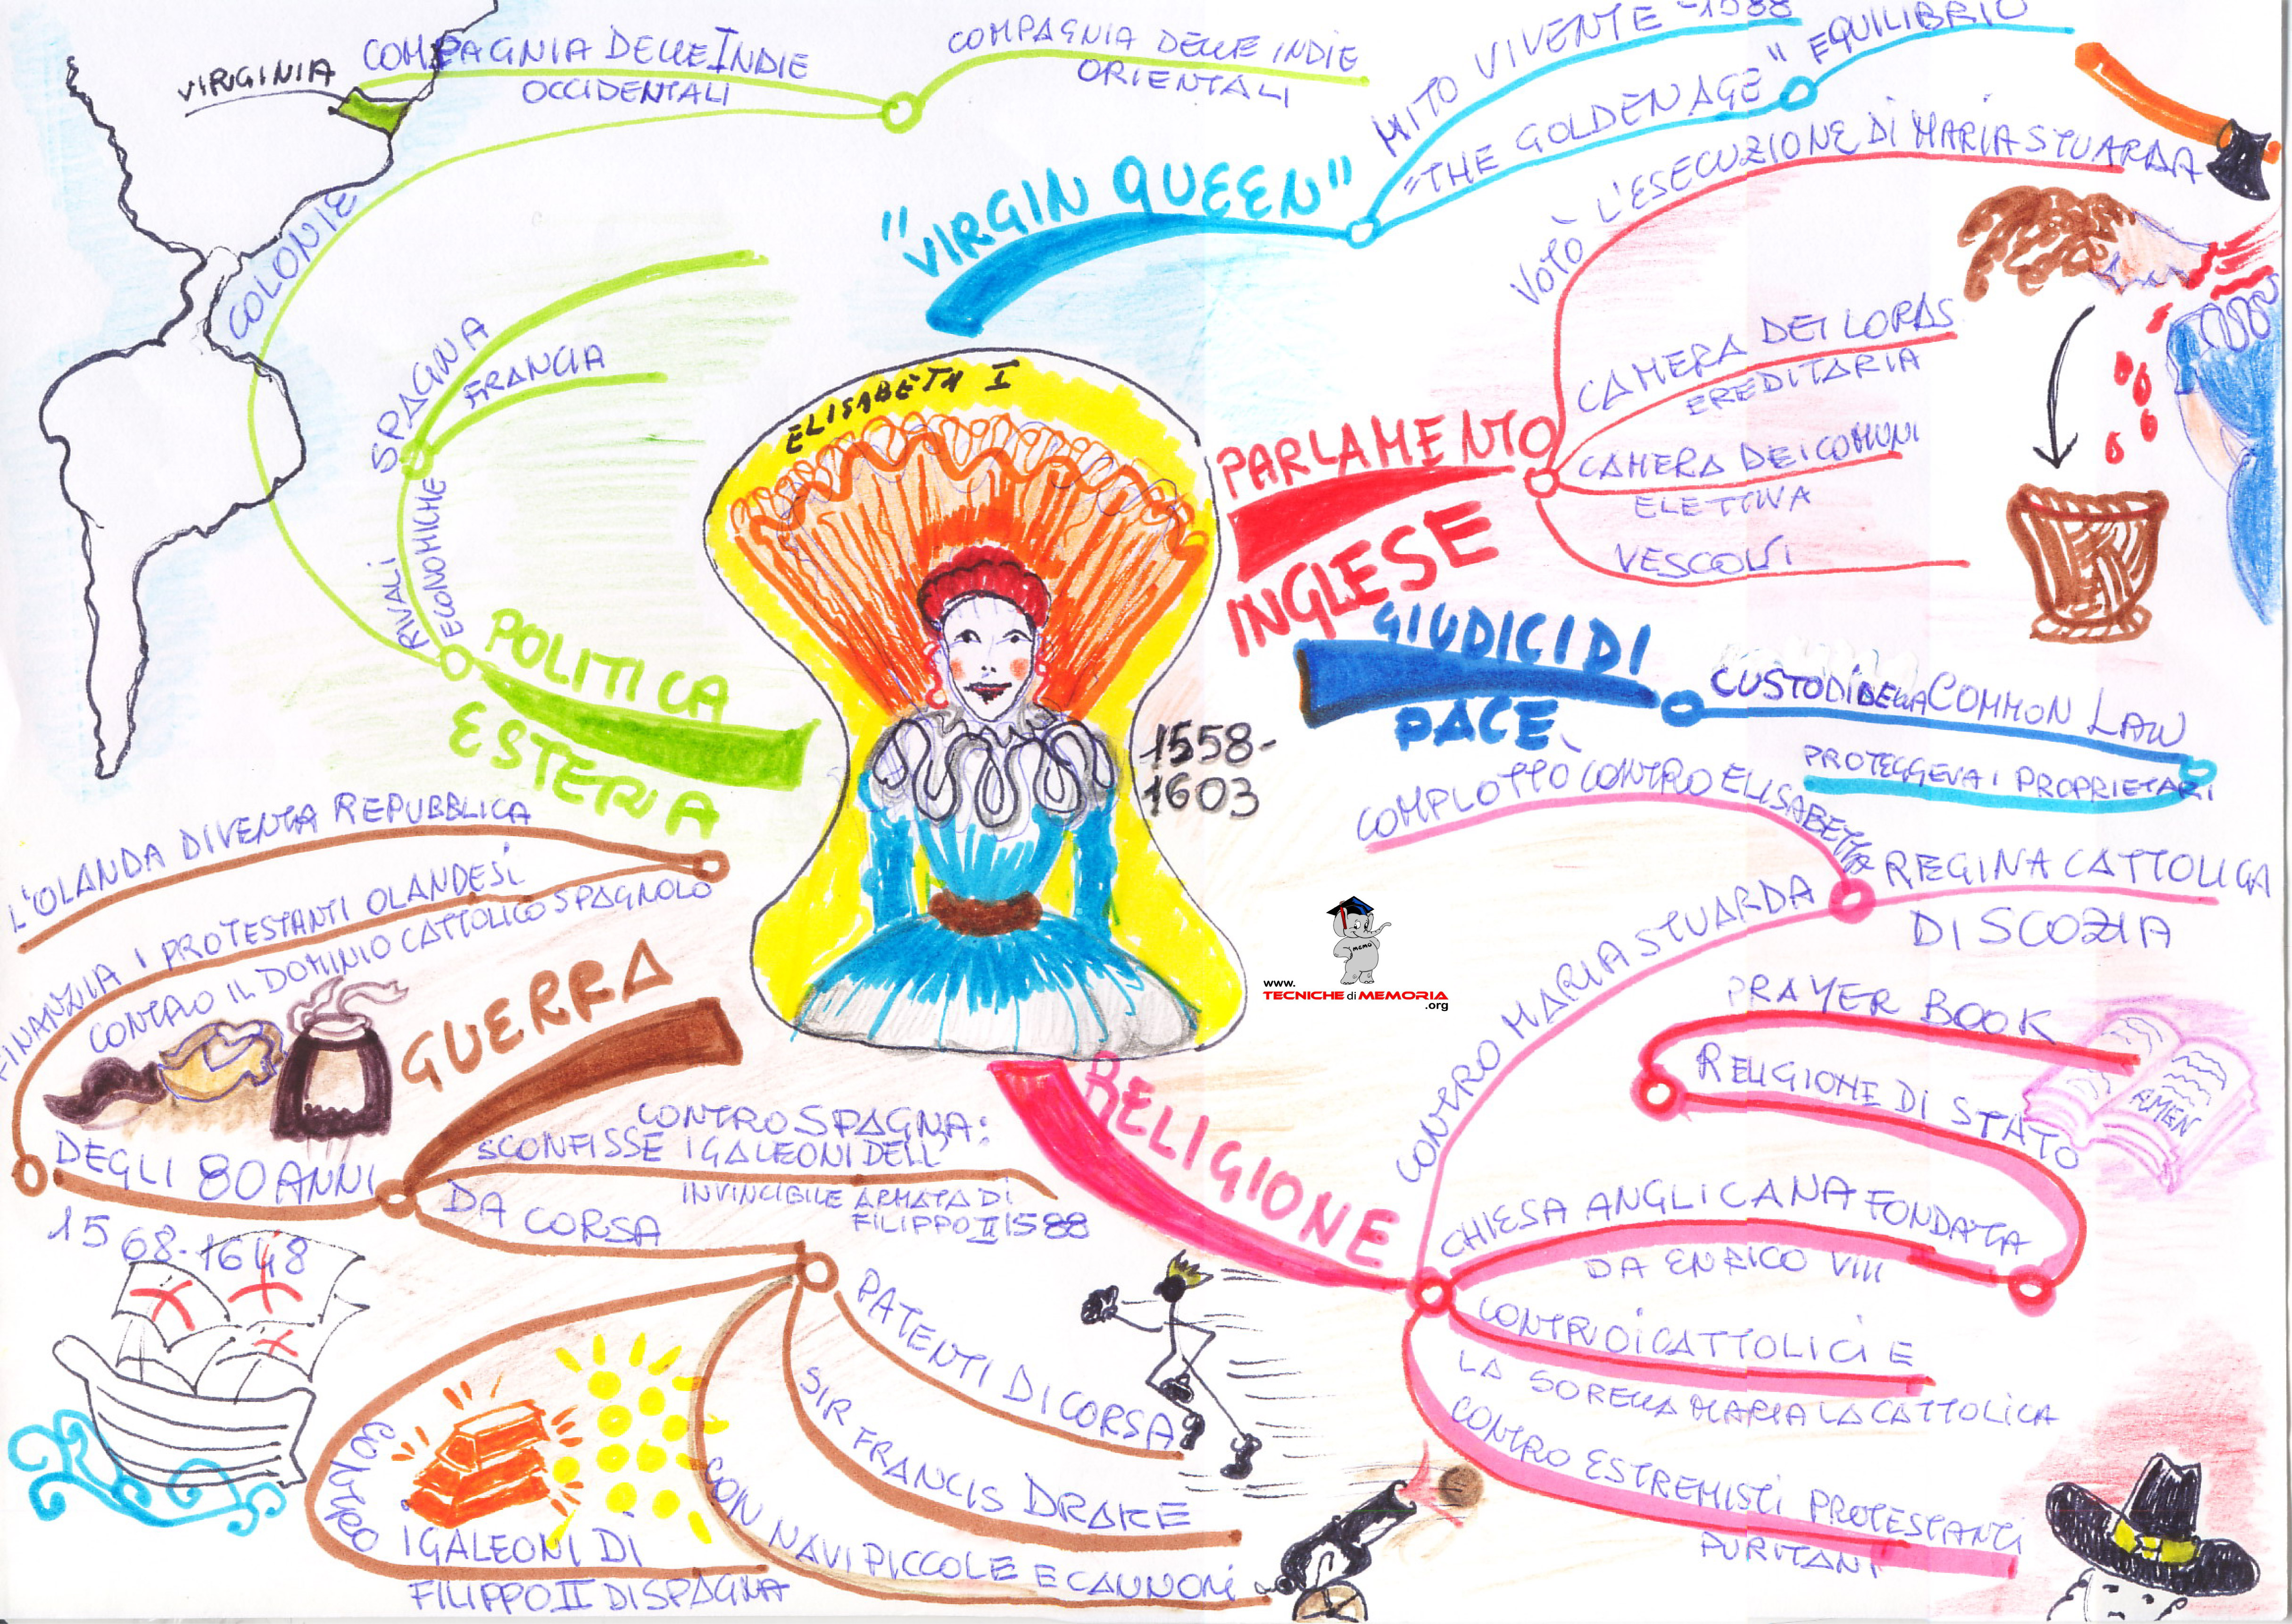 ELISABETH I
1558-
1603
"VIRGIN QUEEN"
MITO VIVENTE -1588
"THE GOLDEN AGE"
EQUILIBRIO
PARLAMENTO
INGLESE
VOTÒ L'ESECUZIONE DI MARIA STUARDA
CAMERA DEI LORDS
EREDITARIA
CAMERA DEI COMUNI
ELETTIVA
VESCOVI
GIUDICI DI
PACE
CUSTODI DELLA COMMON LAW
PROTEGGEVA I PROPRIETARI
RELIGIONE
CONTRO MARIA STUARDA
COMPLOTTÒ CONTRO ELISABETTA
REGINA CATTOLICA
DI SCOZIA
CHIESA ANGLICANA FONDATA
DA ENRICO VIII
RELIGIONE DI STATO
PRAYER BOOK
AMEN
CONTRO I CATTOLICI E
LA SORELLA MARIA LA CATTOLICA
CONTRO ESTREMISTI PROTESTANTI
PURITANI
GUERRA
CONTRO SPAGNA:
SCONFISSE I GALEONI DELL'
INVINCIBILE ARMATA DI
FILIPPO II 1588
DA CORSA
PATENTI DI CORSA
SIR FRANCIS DRAKE
CON NAVI PICCOLE E CANNONI
CONTRO
I GALEONI DI
FILIPPO II DI SPAGNA
DEGLI 80 ANNI
1568-1648
FINANZIA I PROTESTANTI OLANDESI
CONTRO IL DOMINIO CATTOLICO SPAGNOLO
L'OLANDA DIVENTA REPUBBLICA
POLITICA
ESTERA
RIVALI
ECONOMICHE
SPAGNA
FRANCIA
COLONIE
COMPAGNIA DELLE INDIE
OCCIDENTALI
VIRGINIA
COMPAGNIA DELLE INDIE
ORIENTALI
MEMO
www.
TECNICHE di MEMORIA
.org